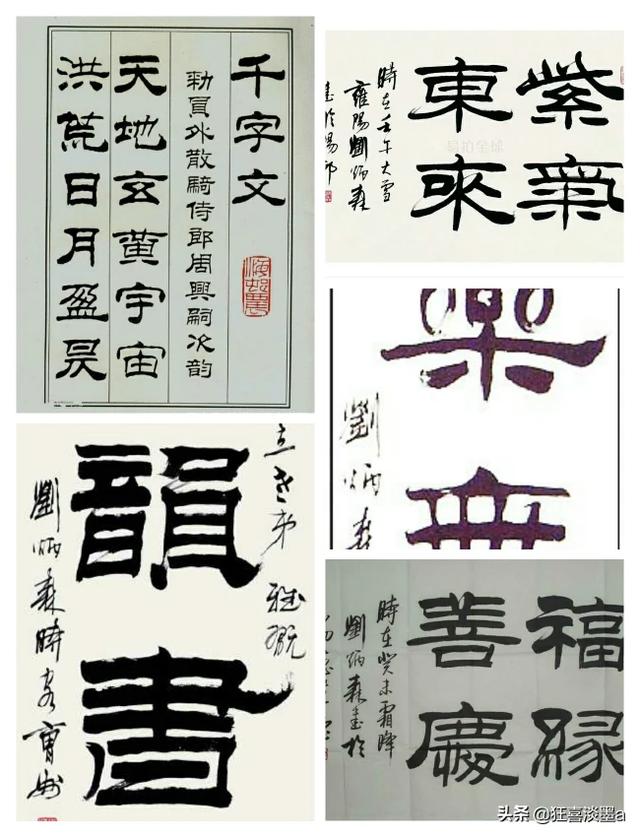 千字文
勑員外散騎侍郎周興嗣次韵
天地玄黄宇宙
洪荒日月盈昃
紫氣
東來
時在壬午大雪
雍陽劉炳森
書於易郊
樂無
劉炳森
韻書
立老弟
雅觀
劉炳森時客曹州
福緣
善慶
時在癸未霜降
劉炳森書於
头条 @狂喜淡墨a